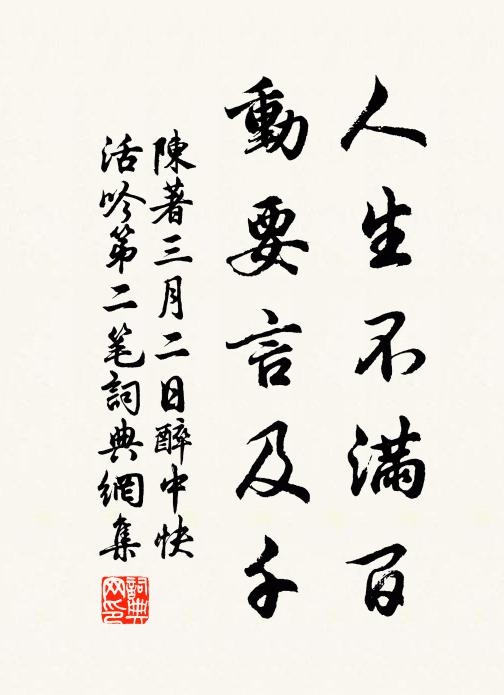 人生不滿百
動要言及千
陳著三月二日醉中快
活吟第二笔詞典網集
詞典网印